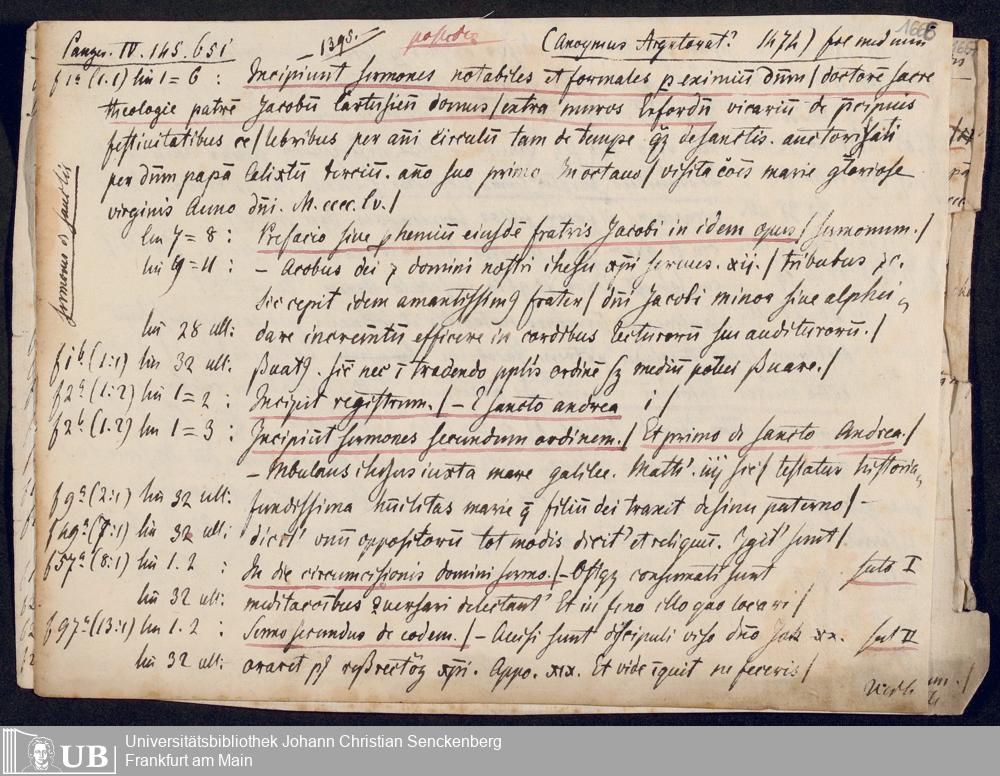 1666
Panzer. IV. 145. 651 — 1395. (Anonymus Argentorat. 1474) fol med min
f 1a (1.1) lin 1=6 : Incipiunt sermones notabiles et formales p eximiū dn̄m / doctorē sacre
theologie patrē Jacobū Cartusiēn domus / extra muros Erfordn̄ vicariū de p̄cipuis
festiuitatibus ce/lebribus per an̄i circulū tam de tempe qz de sanctis. auctorisati
per dn̄m papā Calixtū terciū. an̄o suo primo In octaua / visitac̄ōis marie gl̄oriose
virginis Anno dn̄i. M. cccc. lv. /
Sermones de sanctis
lin 7=8 : Prefacio siue phemiū eiusdē fratris Jacobi in idem opus / sermonum. /
lin 9=11 : — Acobus dei z domini nostri ihesu xp̄i seruus. xij. / tribubus zc.
Sic cepit idem amantissim9 frater / dn̄i Jacobi minor siue alphei
lin 28 ult: dare incremētū efficere in cordibus lecturorū seu auditurorū. /
f 1b (1:1) lin 32 ult: ßuat9. sic̄ nec ī tradendo pplīs ordinē sz mediū potui ßuare. /
f 2a (1:2) lin 1=2 : Incipit registrum. / — sancto andrea i /
f 2b (1.2) lin 1=3 : Incipiūt sermones secundum ordinem. / Et primo de sancto Andrea. /
— Mbulans ihesus iuxta mare galilee. Matth'. iiij sic / testatur historia
f 9a (2:1) lin 32 ult: fundissima hūilitas marie q̄ filiū dei traxit de sinu paterno /
f 49a (7:1) lin 32 ult: dicit' vnū oppositorū tot modis dicit' et reliquū. Igit' sunt /
f 57a (8:1) lin 1.2 : In die circumcisionis domini sermo. / — Ostqz consumati sunt
lin 32 ult: meditacōibus 2uersari delectant' Et in feno illo quo locari /
f 97a (13:1) lin 1.2 : Sermo secundus de eodem. / — Auisi sunt discipuli viso dn̄o Joh xx.
lin 32 ult: oraret p9 reßrectōez xp̄i. Appo. xix. Et vide īquit ne feceris /
UB Universitätsbibliothek Johann Christian Senckenberg
Frankfurt am Main